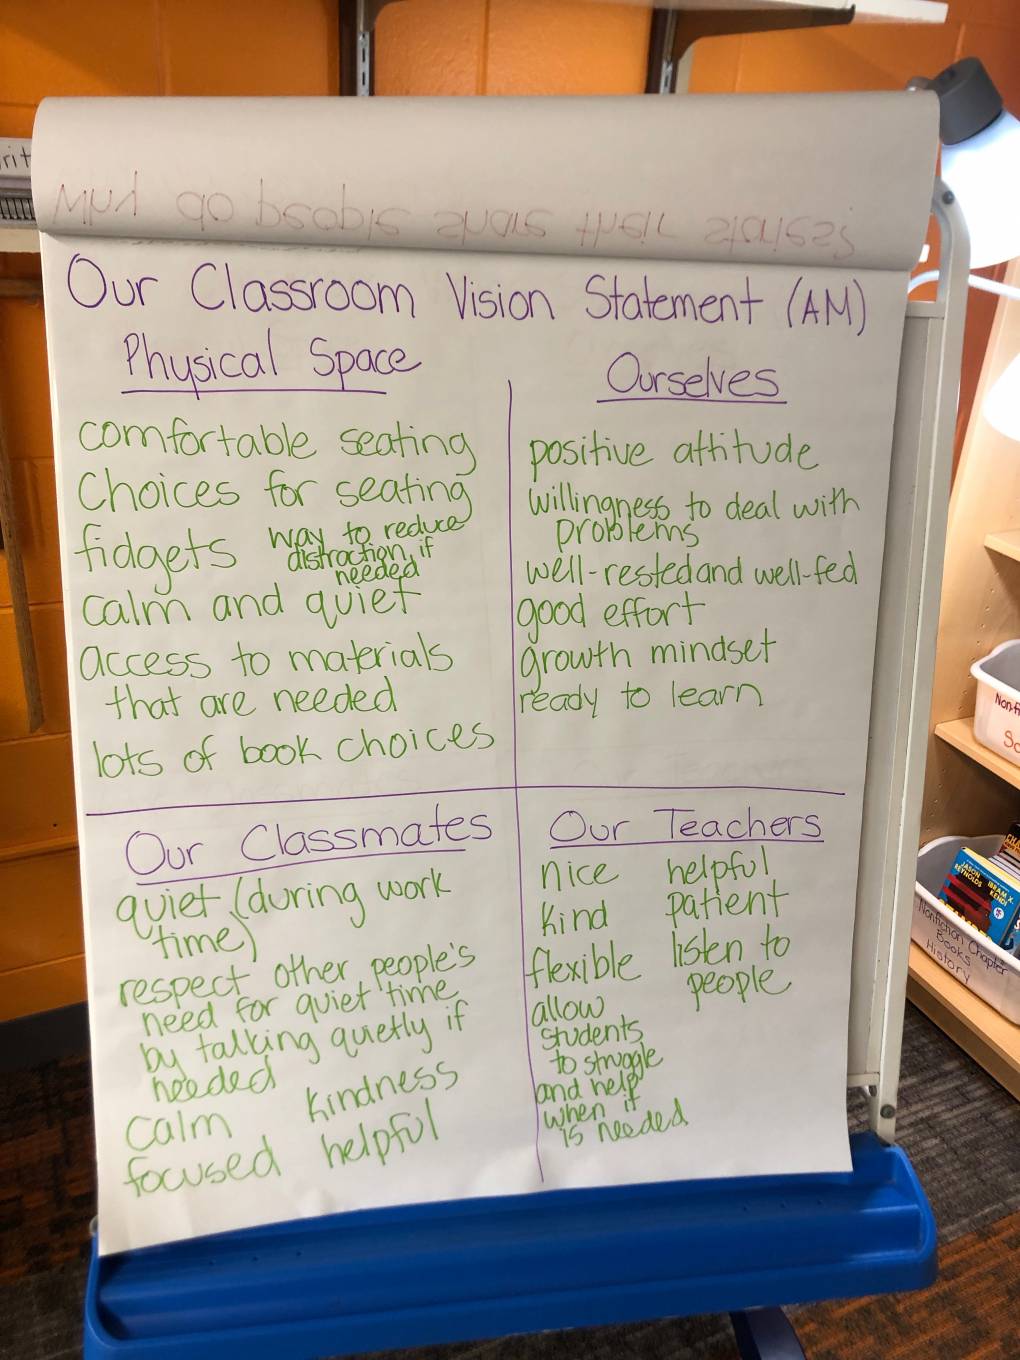 rit
Why do people share their stories?
Our Classroom Vision Statement (AM)
Physical Space
comfortable seating
Choices for seating
fidgets way to reduce
distraction, if
needed
calm and quiet
access to materials
that are needed
lots of book choices
Ourselves
positive attitude
willingness to deal with
problems
well-rested and well-fed
good effort
growth mindset
ready to learn
Our Classmates
quiet (during work
time)
respect other people's
need for quiet time
by talking quietly if
needed
Calm kindness
focused helpful
Our Teachers
nice helpful
kind patient
flexible listen to
people
allow
students
to struggle
and help
when it
is needed
JASON
REYNOLDS
IBRAM X.
KENDI
Nonfiction Chapter
Books
History